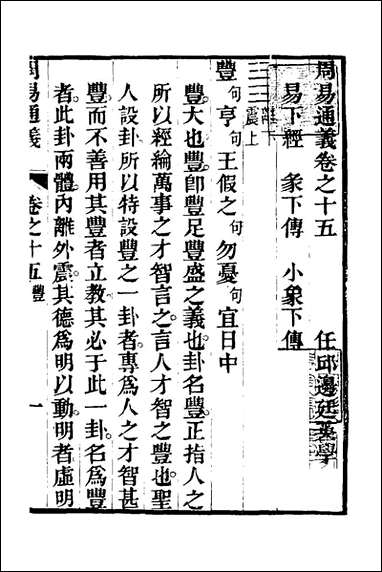 周易通義卷之十五
任邱邊廷英學
易下經　彖下傳　小象下傳
離下
震上
豐句亨句王假之句勿憂句宜日中
豐大也豐卽豐足豐盛之義也卦名豐正指人之
所以經綸萬事之才智言之言人才智之豐也聖
人設卦所以特設豐之一卦者專為人之才智甚
豐而不善用其豐者立教其必于此一卦名為豐
者此卦兩體內離外震其德為明以動明者虛明
周易通義
卷之十五豐
一